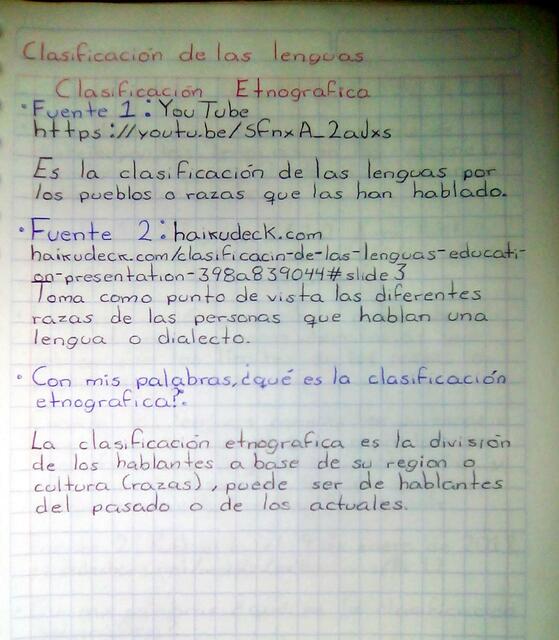 Clasificación de las lenguas
Clasificación Etnografica
• Fuente 1: YouTube
https://youtu.be/SfnxA_2adxs
Es la clasificación de las lenguas por
los pueblos o razas que las han hablado.
• Fuente 2: haikudeck.com
haikudeck.com/clasificacin-de-las-lenguas-educati-
on-presentation-398a839044#slide3
Toma como punto de vista las diferentes
razas de las personas que hablan una
lengua o dialecto.
• Con mis palabras, ¿qué es la clasificación
etnografica?.
La clasificación etnografica es la división
de los hablantes a base de su region o
cultura (razas), puede ser de hablantes
del pasado o de los actuales.